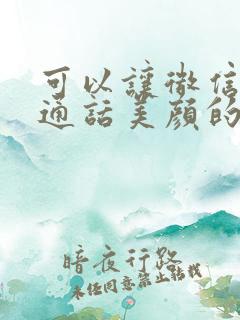 可以讓微信
通話美顏的
暗夜行路
未经同意禁止转载